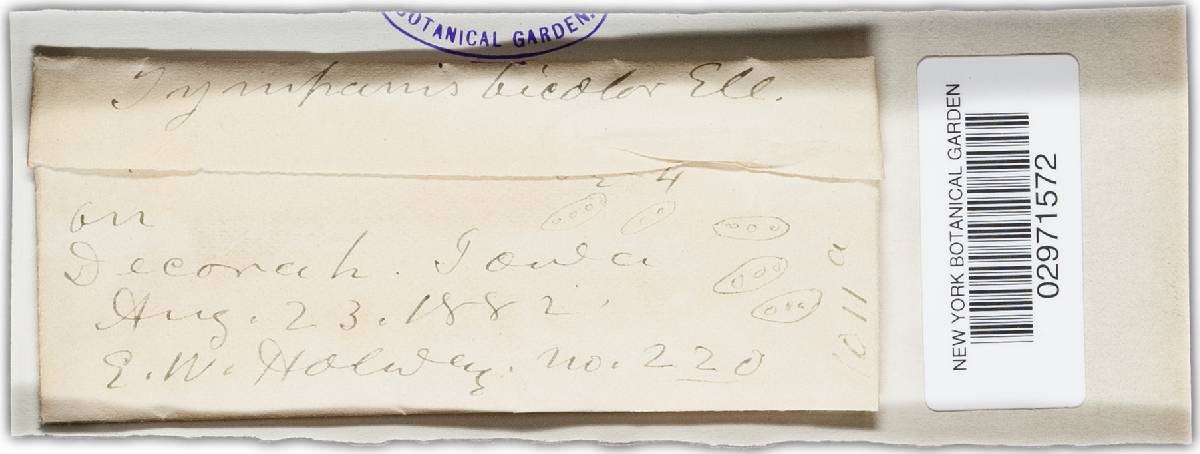 BOTANICAL GARDEN.
Tympanis bicolor Ell.
on
Decorah. Iowa
Aug. 23. 1882.
E. W. Holway. no. 220
1011 a
NEW YORK BOTANICAL GARDEN
02971572